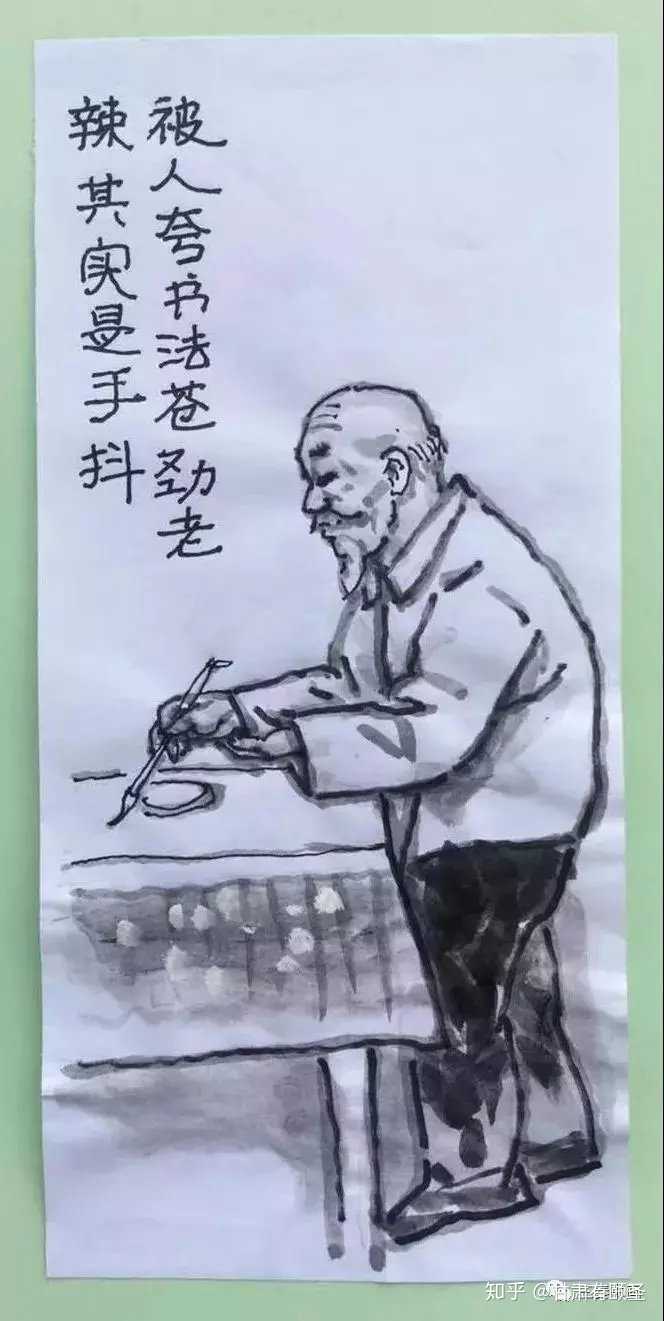 被人夸书法苍劲老
辣其实是手抖
知乎